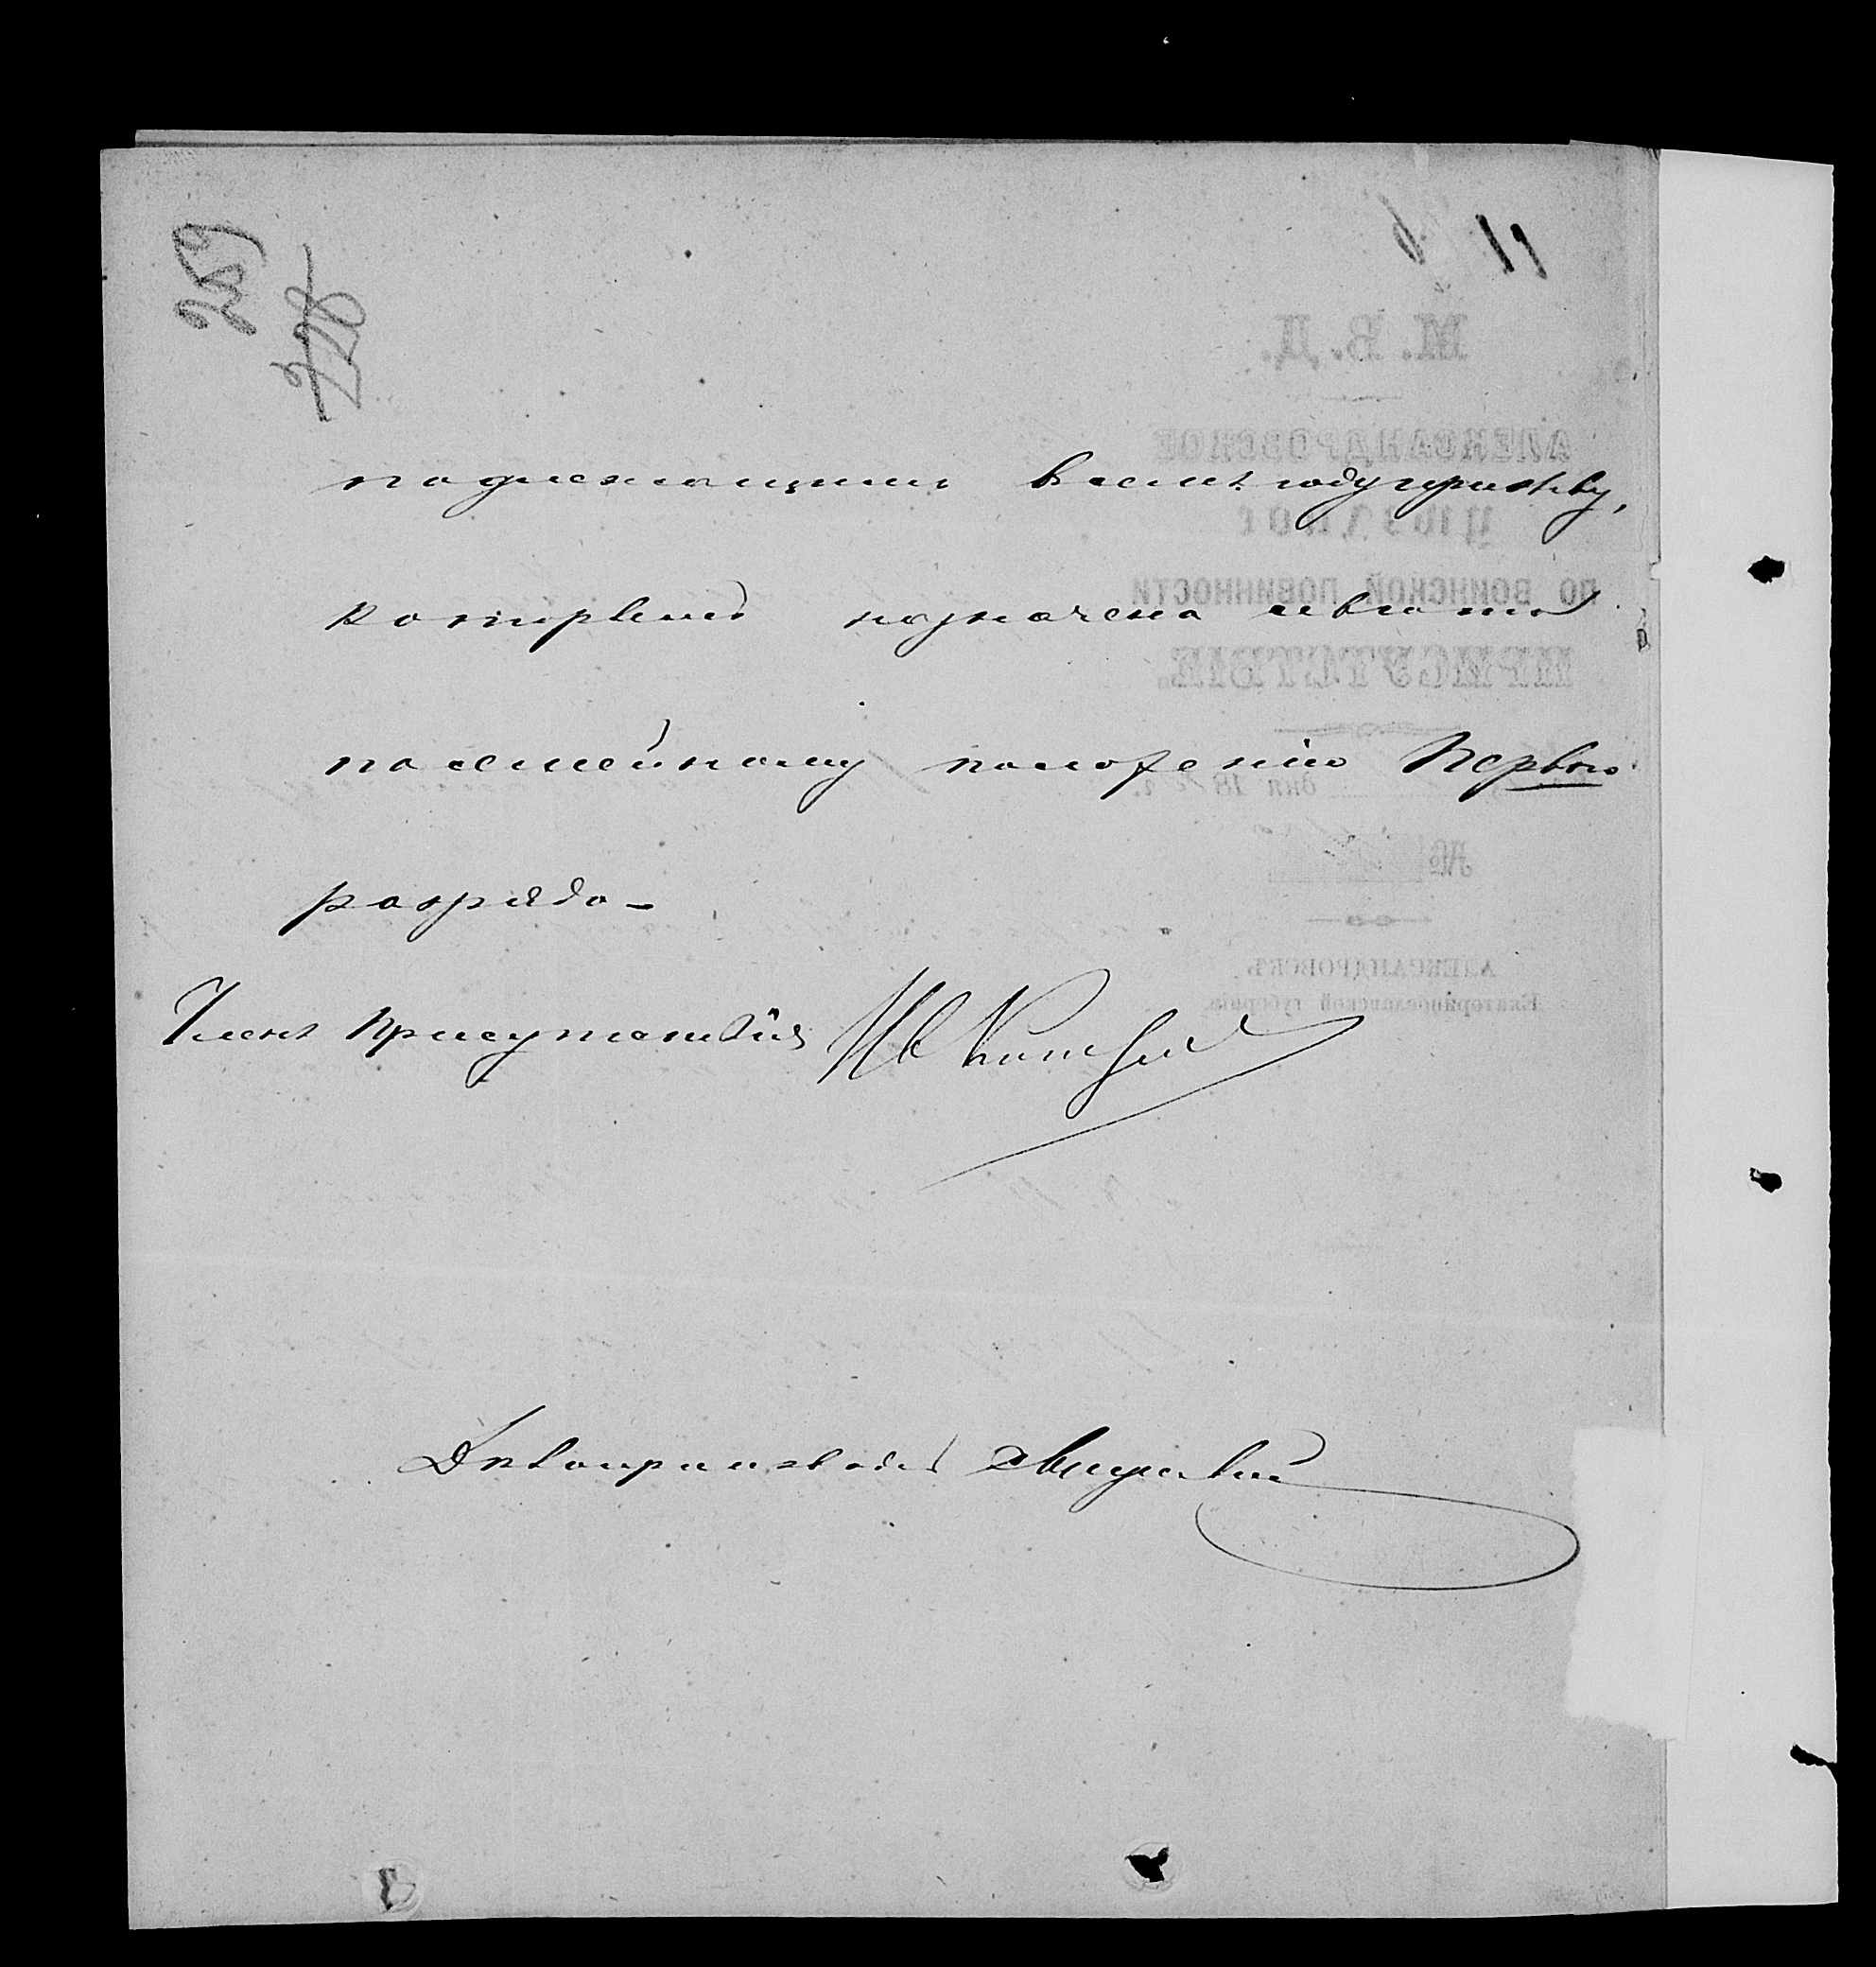 259
728
подлежащимъ въ семъ году призыву,
которымъ назначена льгота
по семейному положенію Перваго
разряда
Членъ Присутствія
Дѣлопроизводитель